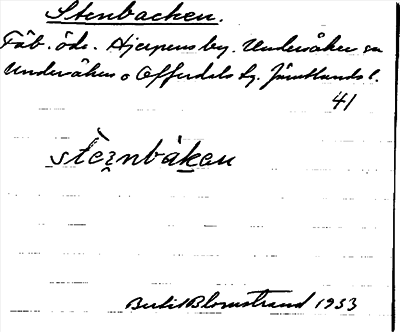 Stenbacken.
Fäb. öde. Hjerpens by. Undersåker sn
Undersåkers o Offerdals tg. Jämtlands l.
41
stèi̯nbàken
Bertil Blomstrand 1933